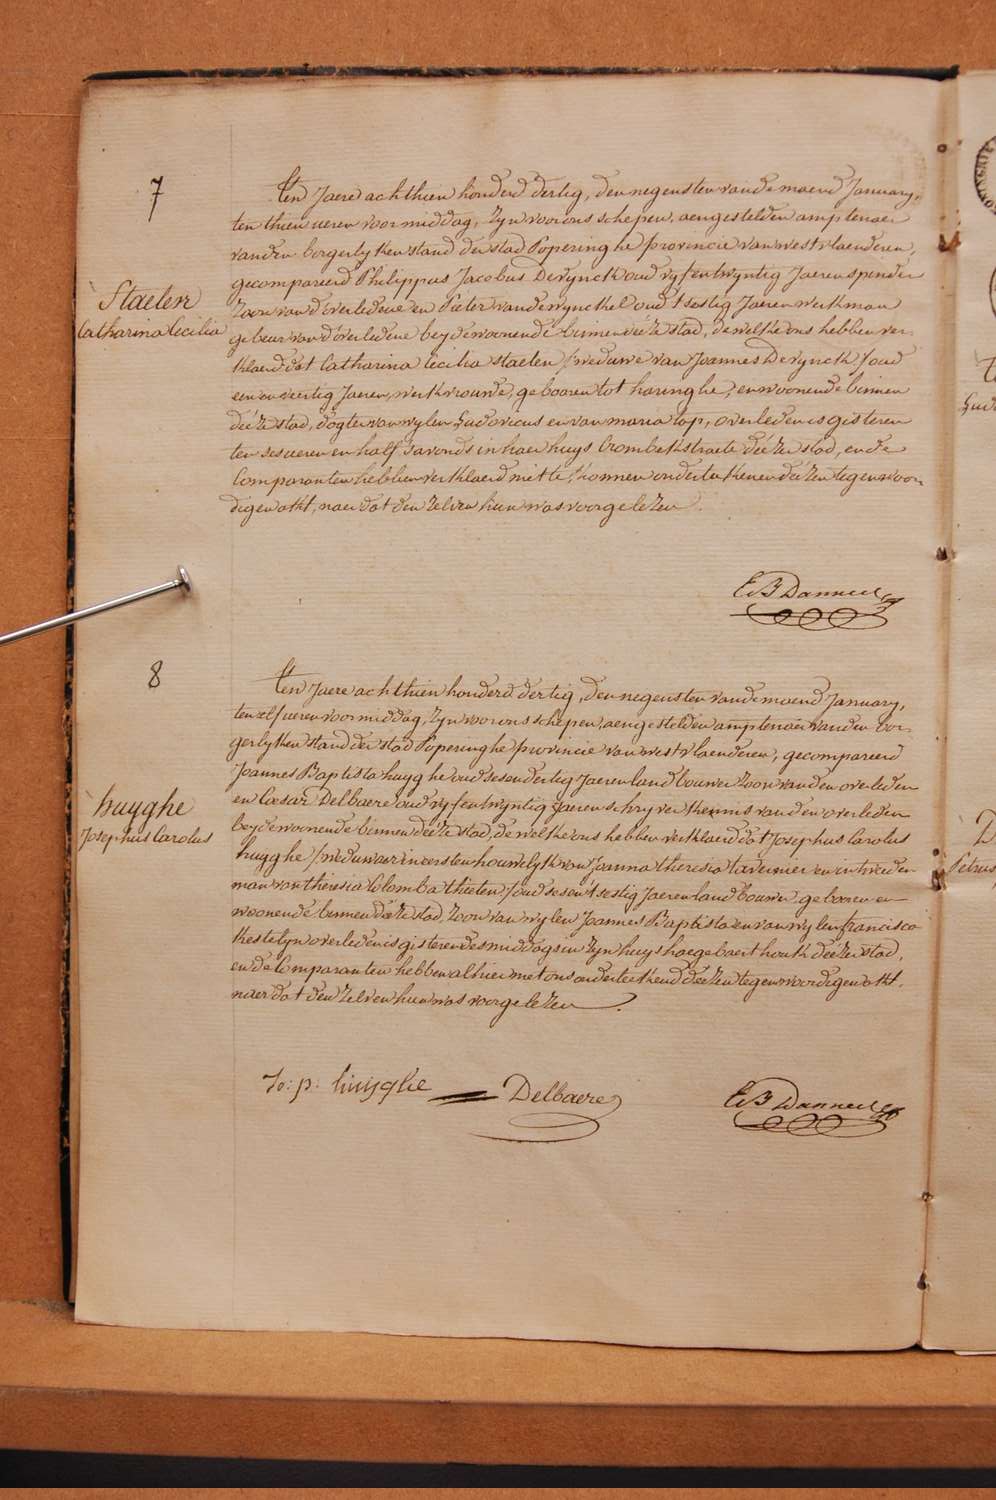 7
Staelen
Catharina Cecilia
Ten Jaere achthien honderd dertig, den negensten van de maend January,
ten thien ueren voormiddag, Zyn voor ons schepen, aengestelden amptenaer
van den borgerlyken stand der stad Poperinghe provincie van westvlaenderen,
gecompareerd Philippus Jacobus Devynck oud vyfentwyntig Jaeren spinder
Zoon van d'overledene en Pieter vandewynckel oud t'sestig Jaeren werkman
gebeur van d'overledene beyde woonende binnen dééze stad, de welke ons hebben ver-
klaerd dat Catharina Cecilia Staelen / weduwe van Joannes Devynck / oud
een en veertig Jaeren, werkvrouwe, gebooren tot haringhe, en woonende binnen
dééze stad, dogter van wylen Ludovicus en van maria top, overleden is gisteren
ten ses ueren en half s'avonds in haer huys Crombekstraete déézer stad, en de
Comparanten hebben verklaerd niet te konnen onderteekenen déézen tegenwoor-
digen akt, naer dat den Zelven hun was voorgelezen.
E B Danneel
8
huyghe
Josephus Carolus
Ten Jaere achthien honderd dertig, den negensten van de maend January,
ten elf ueren voormiddag, Zyn voor ons schepen, aengestelden amptenaer van den bor-
gerlyken stand der stad Poperinghe provincie van westvlaenderen, gecompareerd
Joannes Baptista huyghe oud sesendertig Jaeren landbouwer Zoon van den overleden
en Cæsar Delbaere oud vyfentwyntig Jaeren schryver kennis van den overleden
beyde woonende binnen dééze stad, de welke ons hebben verklaerd dat Josephus Carolus
huyghe / weduwaer in eersten houwelyk van Joanna theresia tavernier en in tweeden
man van theresia Colomba thieten / oud sesent'sestig Jaeren landbouwer gebooren en
woonende binnen dééze stad, Zoon van wylen Joannes Baptista en van wylen francisca
kestelyn overleden is gisteren des middags in Zyn huys haegebaert houk déézer stad,
en de Comparanten hebben alhier met ons onderteekend déézen tegenwoordigen akt,
naer dat den Zelven hun was voorgelezen.
Jo: p: huijghe
Delbaere
E B Danneel